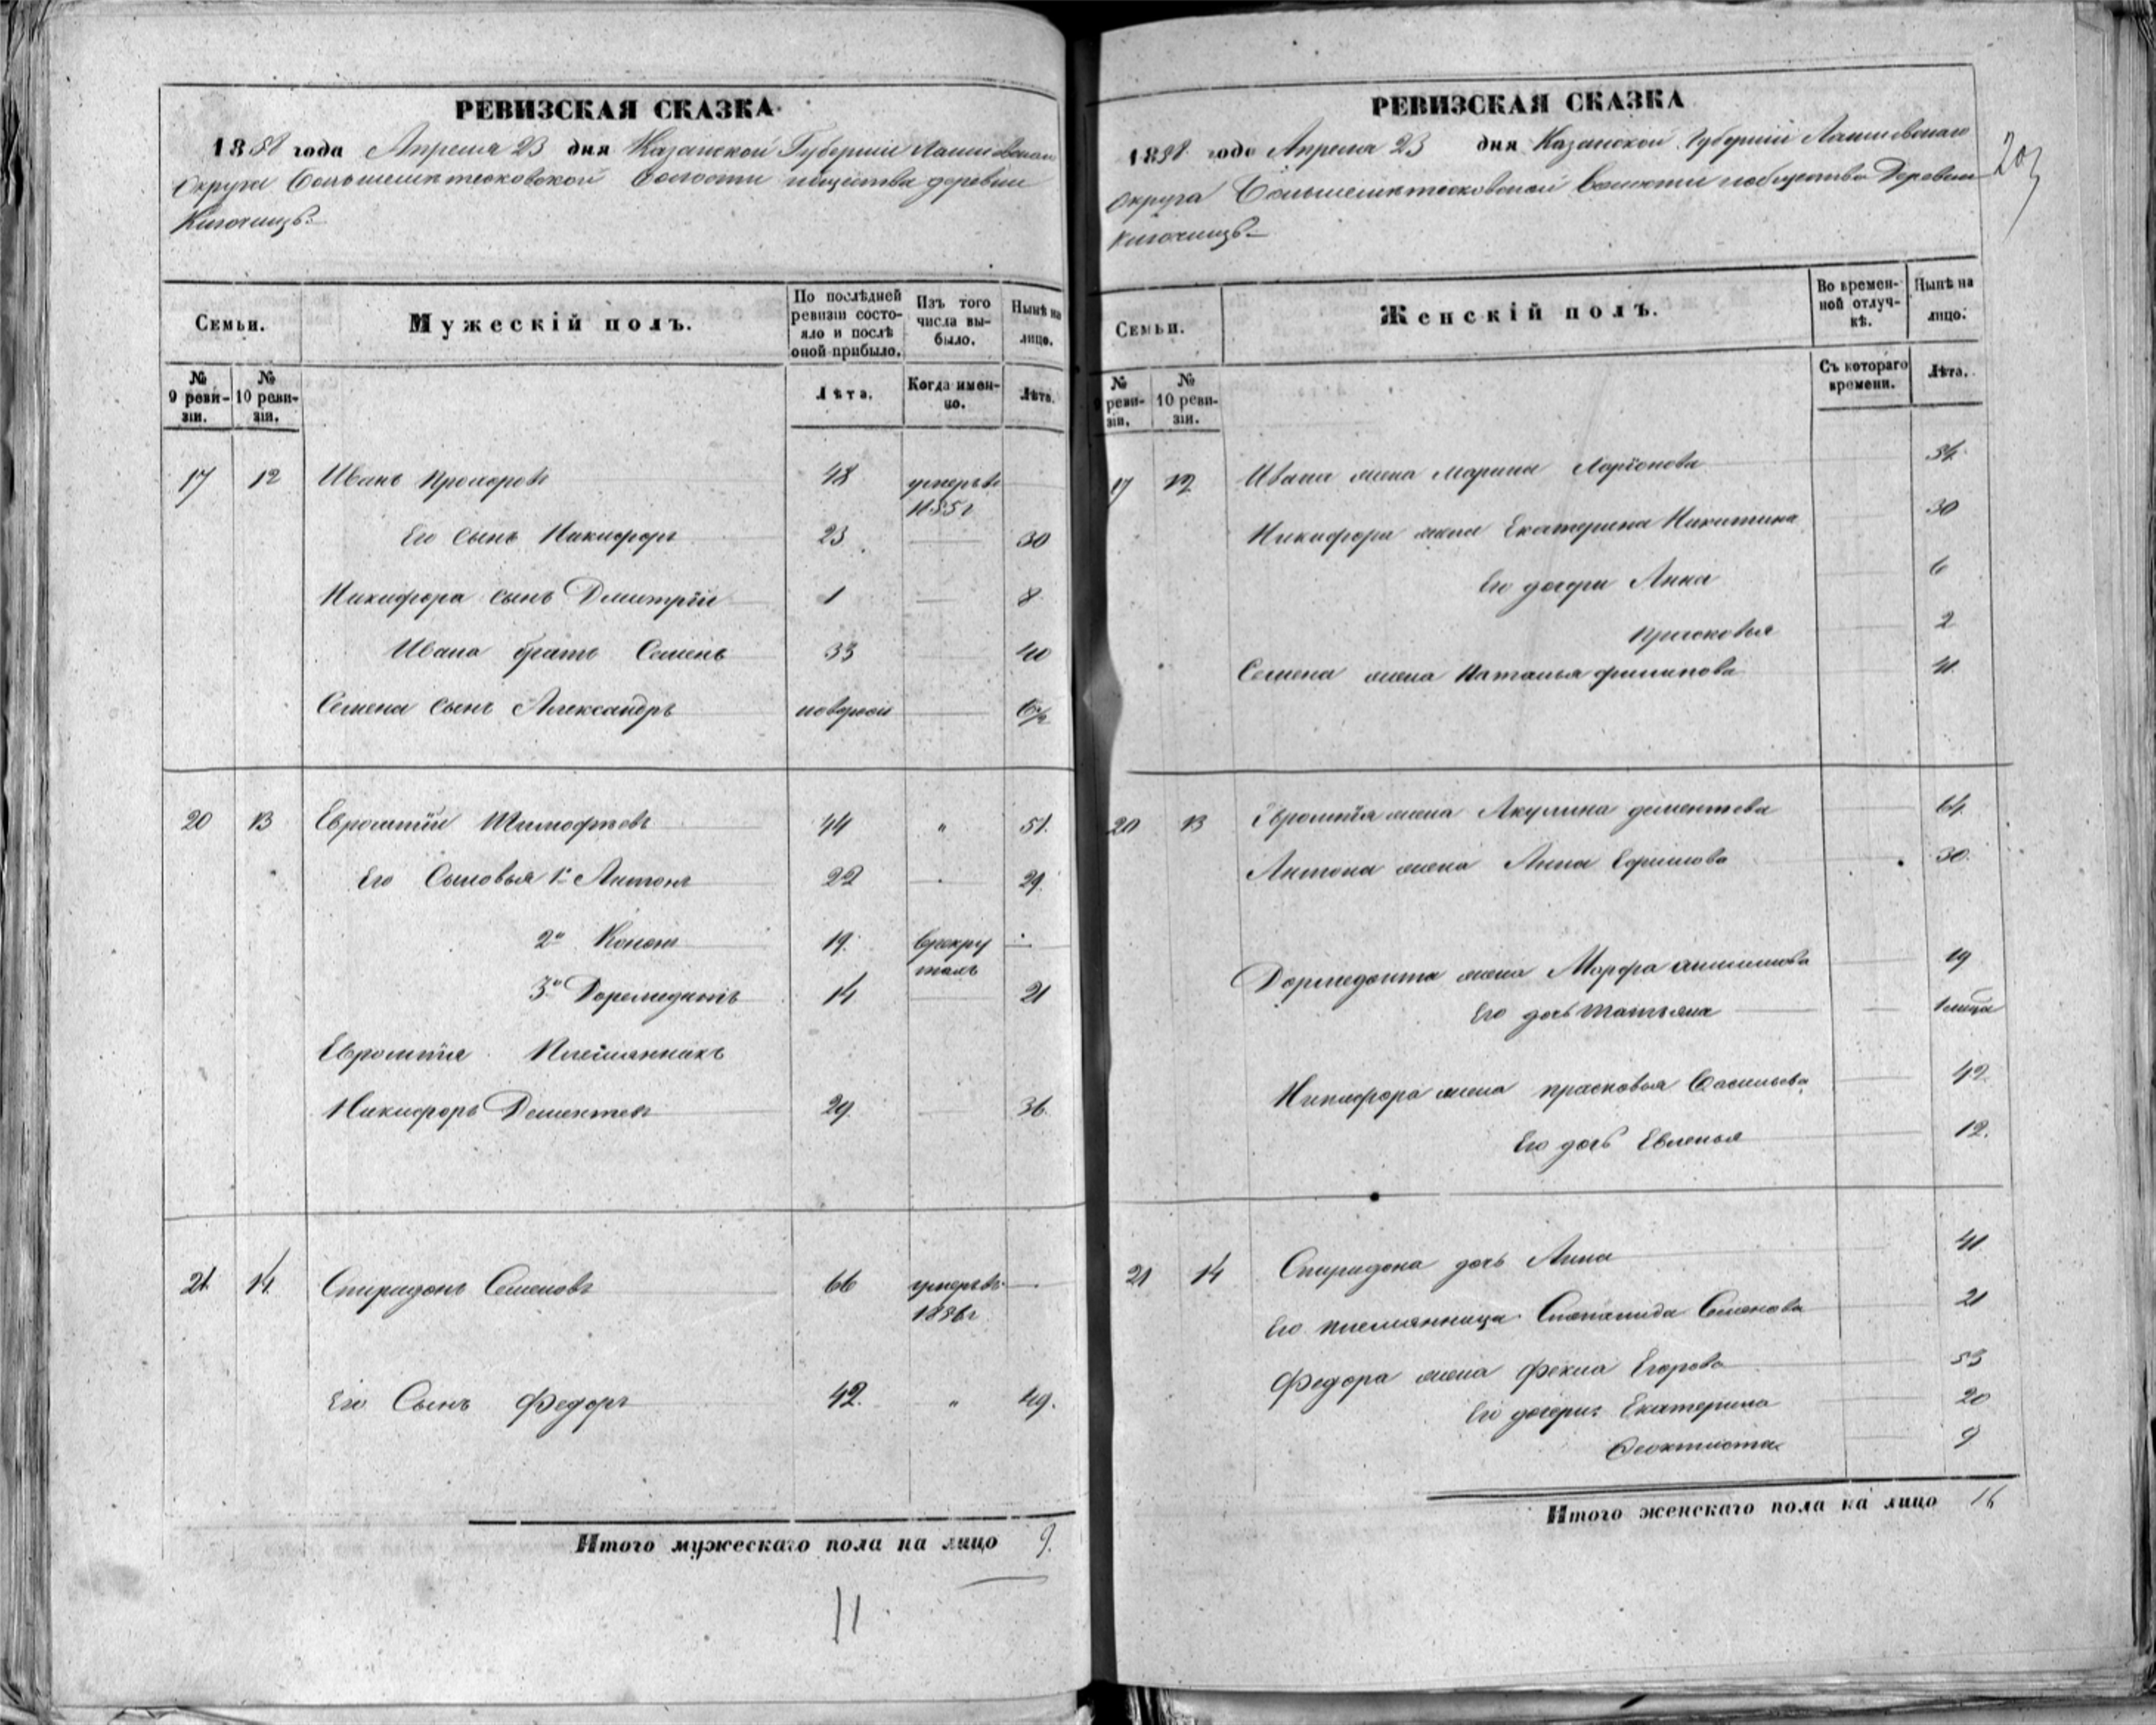 РЕВИЗСКАЯ СКАЗКА
1858 года Апреля 23 дня Казанской Губерніи Лаишевскаго
Округа волости общества деревни
РЕВИЗСКАЯ СКАЗКА
1858 года Апреля 23 дня Казанской Губерніи Лаишевскаго
округа волости общества Деревни
203
Семьи.
Мужескій полъ.
По послѣдней ревизіи состояло и послѣ оной прибыло.
Изъ того числа выбыло.
Нынѣ на лицо.
№ 9 ревизіи.
№ 10 ревизіи.
Лѣта.
Когда именно.
Лѣта.
17 12 Иванъ Прохоровъ 48 умеръ въ
1855 г
Его сынъ Никифоръ 23 30
Никифора сынъ Дмитрій 1 8
Ивана братъ Семенъ 33 40
Семена сынъ Александръ новорож 6/м
20 13 Евромпій Тимофѣевъ 44 " 51.
Его Сыновья 1й Антонъ 22 29.
2й Конон 19. в рекру
тахъ
3й Доремидонтъ 14 21
Евромпія Племянникъ
Никифоръ Дементьев 29. 36.
21. 14. Спиридонъ Семеновъ 66 умеръ въ
1856 г
Его Сынъ Федоръ 42. " 49.
Итого мужескаго пола на лицо 9.
11
Семьи.
Женскій полъ.
Во временной отлучкѣ.
Нынѣ на лицо.
№ 9 ревизіи.
№ 10 ревизіи.
Съ котораго времени.
Лѣта.
17 12 Ивана жена Марина Ларіонова 54.
Никифора жена Екатерина Никитина 30
Его дочери Анна 6
Прасковья 2
Семена жена Наталья Филипова 41.
20 13 Евромпія жена Акулина Дементева 64.
Антона жена Анна Ефимова 30.
Дормедонта жена Марфа 19
Его дочь Татьяна 1 месяца
Никифора жена Прасковья Васильева 42.
Его дочь Евгенья 12.
21 14 Спиридона дочь Анна 41
Его племянница Степанида Семенова 21
Федора жена Фекла Егорова 53
Его дочери: Екатерина 20
Феоктиста 9
Итого женскаго пола на лицо 16